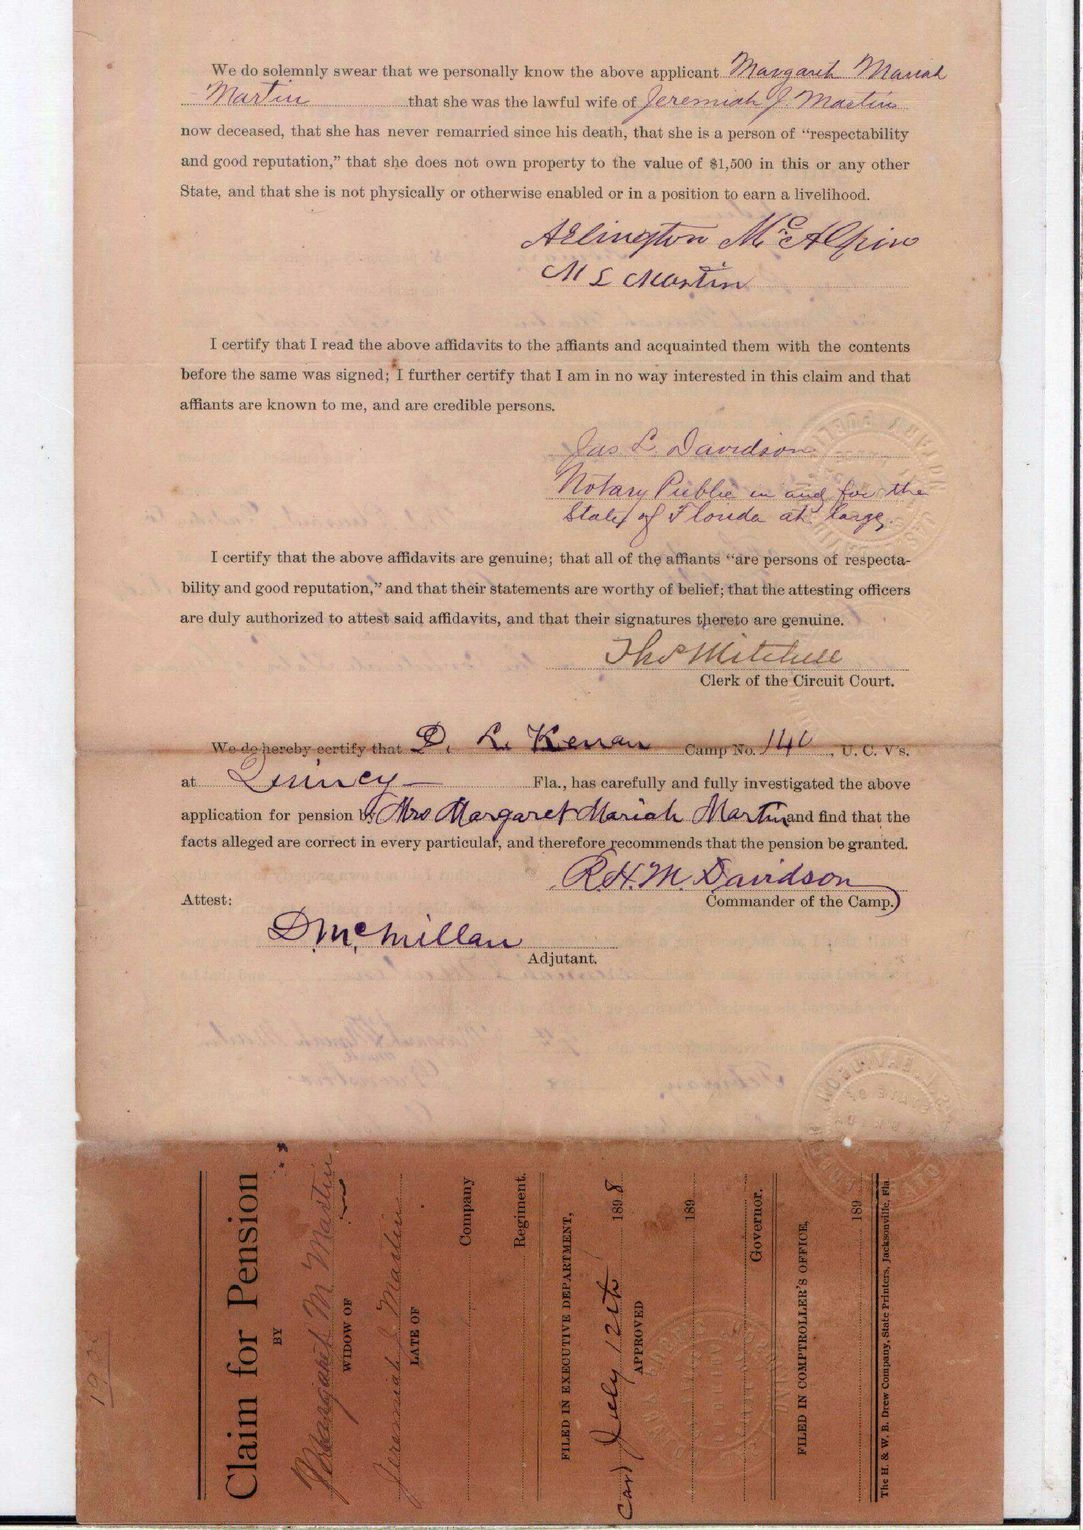 We do solemnly swear that we personally know the above applicant Margaret Mariah
Martin that she was the lawful wife of Jeremiah J. Martin
now deceased, that she has never remarried since his death, that she is a person of “respectability
and good reputation,” that she does not own property to the value of $1,500 in this or any other
State, and that she is not physically or otherwise enabled or in a position to earn a livelihood.
Arlington McAlpin
M L Martin
I certify that I read the above affidavits to the affiants and acquainted them with the contents
before the same was signed; I further certify that I am in no way interested in this claim and that
affiants are known to me, and are credible persons.
Jas L. Davidson
Notary Public in and for the
State of Florida at large.
I certify that the above affidavits are genuine; that all of the affiants “are persons of respecta-
bility and good reputation,” and that their statements are worthy of belief; that the attesting officers
are duly authorized to attest said affidavits, and that their signatures thereto are genuine.
Thos Mitchell
Clerk of the Circuit Court.
We do hereby certify that D. L. Kenan Camp No. 140, U. C. V's.
at Quincy Fla., has carefully and fully investigated the above
application for pension by Mrs Margaret Mariah Martin and find that the
facts alleged are correct in every particular, and therefore recommends that the pension be granted.
R. H. M. Davidson
Commander of the Camp.
Attest:
D. McMillan
Adjutant.
Claim for Pension
BY
Margaret M. Martin
WIDOW OF
Jeremiah J. Martin
LATE OF
Company
Regiment.
FILED IN EXECUTIVE DEPARTMENT,
Card July 12th 1898
APPROVED
189
Governor.
FILED IN COMPTROLLER'S OFFICE,
189
The H. & W. B. Drew Company, State Printers, Jacksonville, Fla.